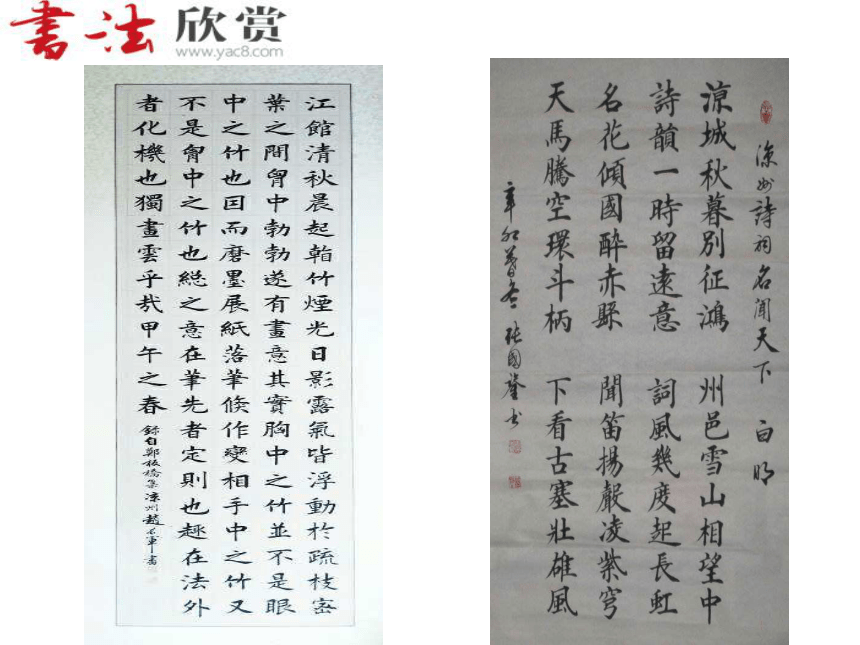 書法欣赏
www.yac8.com
江館清秋晨起看竹煙光日影露氣皆浮動於疏枝密
葉之間胷中勃勃遂有畫意其實胸中之竹並不是眼
中之竹也因而磨墨展紙落筆倏作變相手中之竹又
不是胷中之竹也総之意在筆先者定則也趣在法外
者化機也獨畫雲乎㢤甲午之春
錄自鄭板橋集凉州趙
軍書
涼州詩詞名聞天下 白明
涼城秋暮別征鴻 州邑雪山相望中
詩韻一時留遠意 詞風幾度起長虹
名花傾國醉赤縣 聞笛揚嚴凌紫穹
天馬騰空環斗柄 下看古塞壯雄風
辛卯暮冬 張國肇书